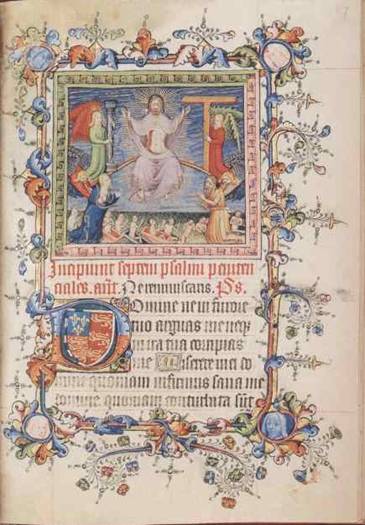 Incipiunt septem psalmi peniten
ciales. ant. Ne reminiscaris. Ps.
Domine ne in furore
tuo arguas me neq
in ira tua corripias
me Miserere mei do
mine quoniam infirmus sana me
domine quoniam conturbata sūt